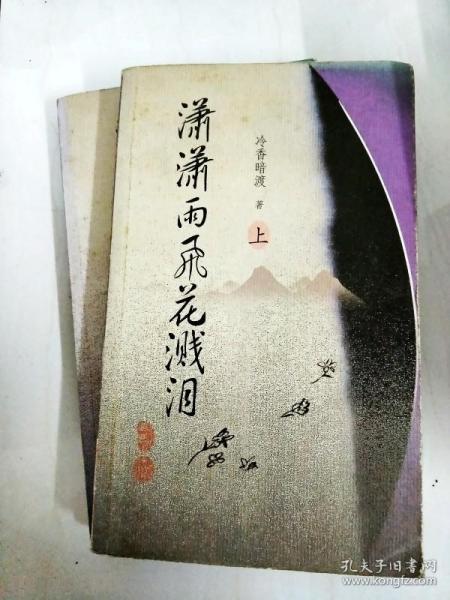 潇潇雨飛花溅泪
冷香暗渡 著
上
孔夫子旧书网
www.kongfz.com